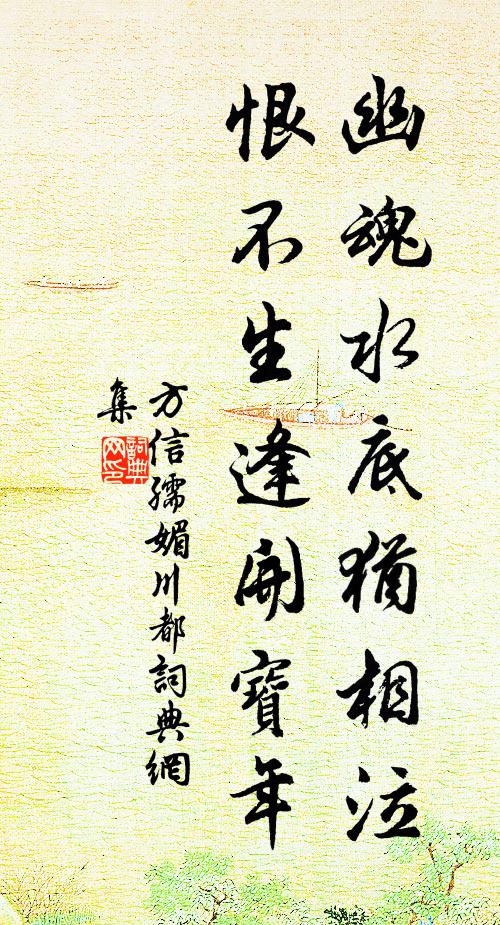 幽魂水底猶相泣
恨不生逢開寶年
方信孺媚川都詞典網
集
詞典
网印